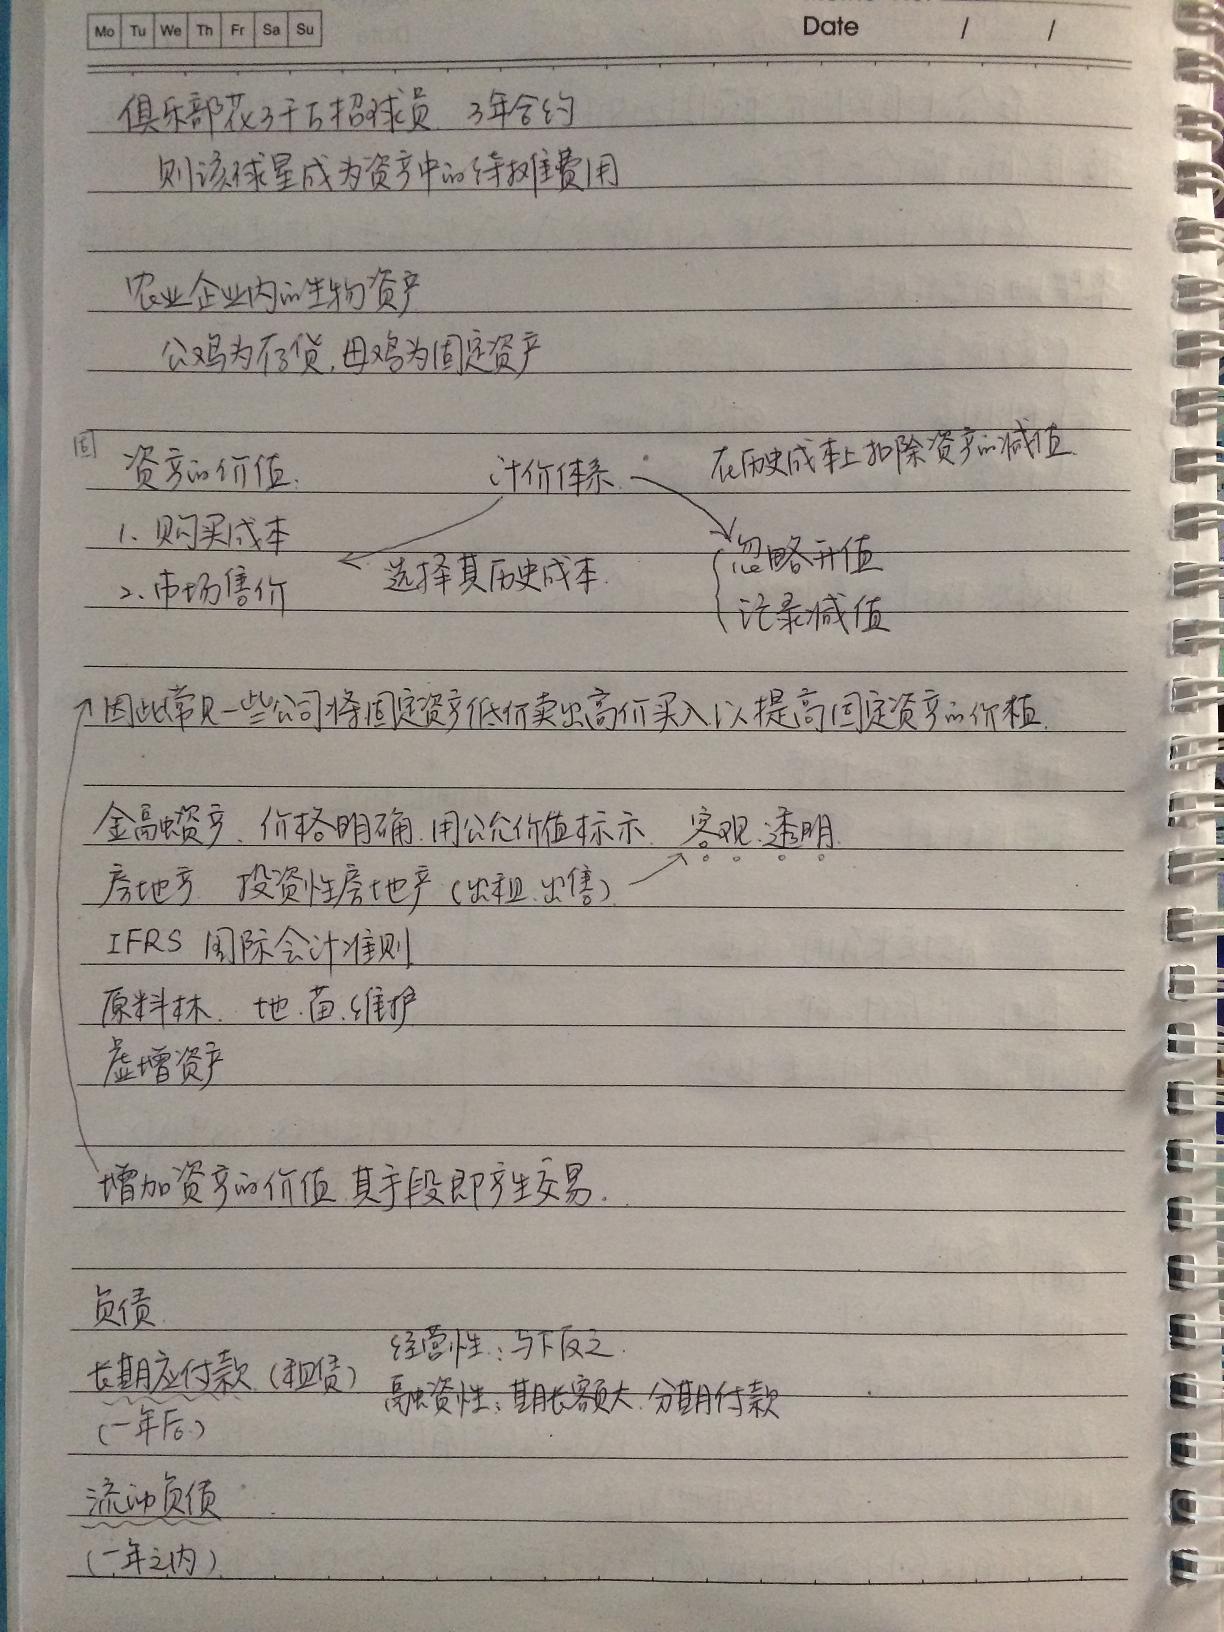 Mo Tu We Th Fr Sa Su
Date / /
俱乐部花3千万招球员 3年合约
则该球星成为资产中的待摊费用
农业企业内的生物资产
公鸡为存货,母鸡为固定资产
固
资产的价值. 计价体系. 在历史成本上扣除资产的减值.
1、购买成本
选择其历史成本. 忽略升值
2、市场售价 记录减值
因此常见一些公司将固定资产低价卖出,高价买入以提高固定资产的价值.
金融资产、价格明确.用公允价值标示. 客观.透明.
房地产. 投资性房地产(出租.出售)
IFRS 国际会计准则
原料林. 地.苗.维护
虚增资产
增加资产的价值.其手段即产生交易.
负债.
经营性:与下反之.
长期应付款(租赁)
融资性:期长额大.分期付款
(一年后)
流动负债
(一年之内)